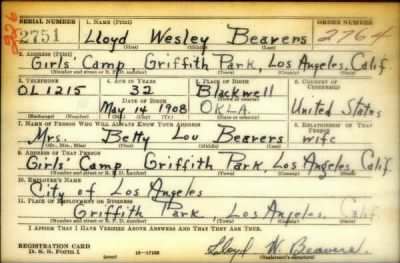 SERIAL NUMBER 1. NAME (Print) ORDER NUMBER
226 2751 Lloyd Wesley Beavers 2764
(First) (Middle) (Last)
2. ADDRESS (Print)
Girls' Camp Griffith Park, Los Angeles, Calif.
(Number and street or R. F. D. number) (Town) (County) (State)
3. TELEPHONE 4. AGE IN YEARS 5. PLACE OF BIRTH 6. COUNTRY OF CITIZENSHIP
OL 1215 32 Blackwell
DATE OF BIRTH (Town or county)
May 14 1908 OKLA. United States
(Exchange) (Number) (Mo.) (Day) (Yr.) (State or country)
7. NAME OF PERSON WHO WILL ALWAYS KNOW YOUR ADDRESS 8. RELATIONSHIP OF THAT PERSON
Mrs. Betty Lou Beavers wife
(Mr., Mrs., Miss) (First) (Middle) (Last)
9. ADDRESS OF THAT PERSON
Girls' Camp Griffith Park, Los Angeles, Calif.
(Number and street or R. F. D. number) (Town) (County) (State)
10. EMPLOYER'S NAME
City of Los Angeles
11. PLACE OF EMPLOYMENT OR BUSINESS
Griffith Park, Los Angeles, Calif
(Number and street or R. F. D. number) (Town) (County) (State)
I AFFIRM THAT I HAVE VERIFIED ABOVE ANSWERS AND THAT THEY ARE TRUE.
REGISTRATION CARD
D. S. S. Form 1 Lloyd W. Beavers